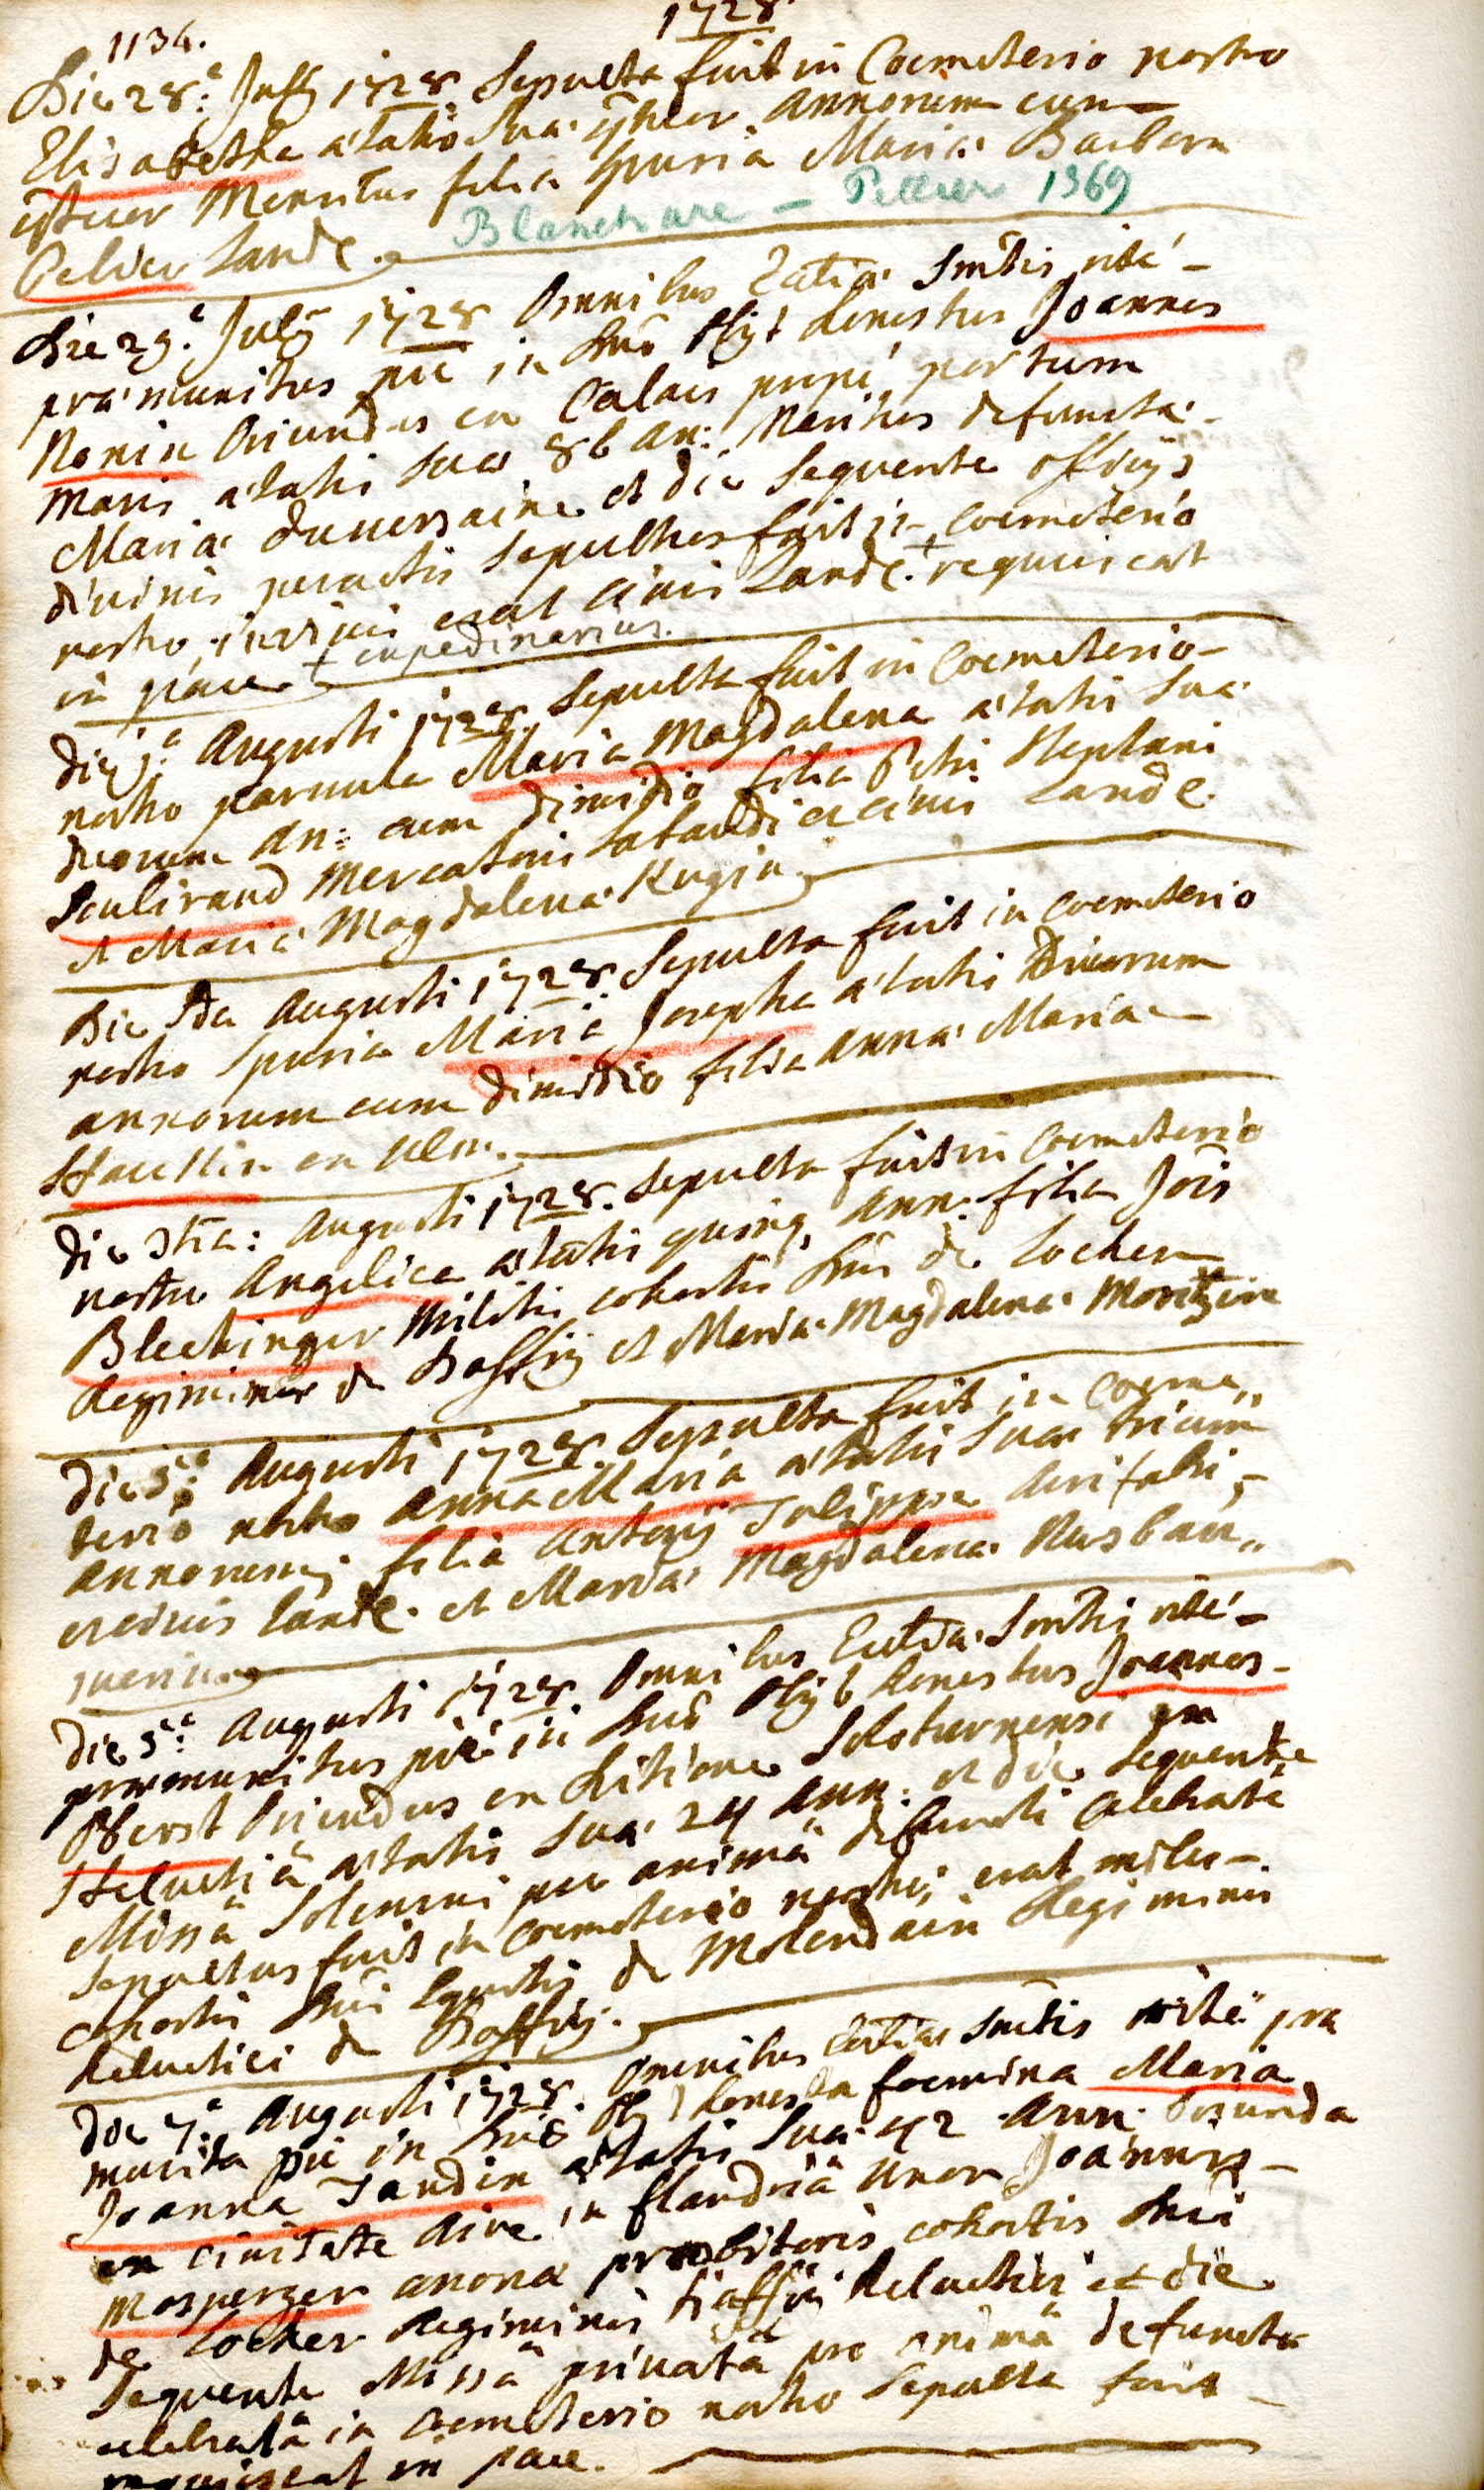 1134.
1728
Die 28.a July 1728. Sepulta fuit in Coemeterio nostro
Elisabetha ætatis suæ annorum cum
Mensibus filia spuria Mariæ Barbara
Pelier Land.
Blanchare - Pellier 1369
Die 29.a July 1728 Omnibus Eccliæ Smtis rité
præmunitus pié in Dno obijt honestus Joannes
Nonin Oriundus ex Calais propé portum
maris ætatis suæ 86 an: Maritus defunctæ
Mariæ duversaine et die sequente officijs
divinis peractis sepultus fuit in Coemeterio
nostro, erat civis Land. + requiescat
in pace. + cupedinarius.
die 1.a Augusti 1728. Sepulta fuit in Coemeterio
nostro parvula Maria Magdalena ætatis suæ
duorum an: cum dimidio filia Petri Stephani
Soulirand Mercatoris et civis Land.
et Mariæ Magdalenæ Rugin.
Die 2da Augusti 1728. Sepulta fuit in Coemeterio
nostro spuria Maria Josepha ætatis duorum
annorum cum dimidio filia Anna Maria
Haullin ex Ulm.
die 3tia: Augusti 1728. Sepulta fuit in Coemeterio
nostro Angelica ætatis quinq. ann. filia Jois
Bleckinger Militis cohortis Dni de Locher
Regiminis de Boffry et Mariæ Magdalenæ Moritzin
die 5.a Augusti 1728. Sepulta fuit in Coeme,,
terio nostro Anna Maria ætatis suæ trium
annorum; filia Antonij Tulippe Aurifabri,
et civis Land. et Mariæ Magdalenæ Nusbau,,
merin.
die 5.a Augusti 1728. Omnibus Eccliæ Smtis rité
præmunitus pié in Dno obijt honestus Joannes
Oberst Oriundus ex Ditione Soloturnensi in
Helvetiâ ætatis suæ 24 ann. et die sequente
Missâ Solemni pro animâ defuncti celebratâ
sepultus fuit in Coemeterio nostro; erat miles
cohortis Dni Equitis de Molendain Regiminis
Helvetici de Boffry.
die 7.a Augusti 1728. Omnibus Eccliæ Smtis rité præ
munita pié in Dno obijt honesta foemina Maria
Joanna Jandin ætatis suæ 42 ann. Oriunda
ex civitate Aire in flandriâ Uxor Joannis
Mosperger anonæ præbitoris cohortis Dni
de Locher Regiminis Boffry Helvetici et die
sequente Missâ privatâ pro animâ defunctæ
celebratâ in Coemeterio nostro sepulta fuit
requiescat in pace.